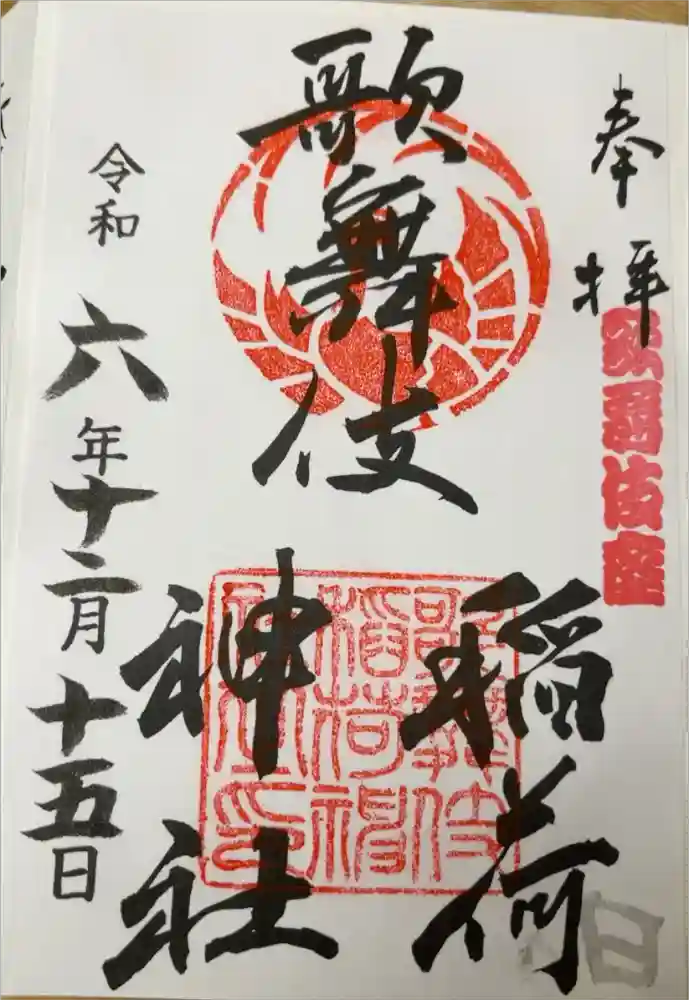 奉拝
歌舞伎座
歌舞伎
稲荷
神社
歌舞伎
稲荷神
社之印
令和六年十二月十五日
日